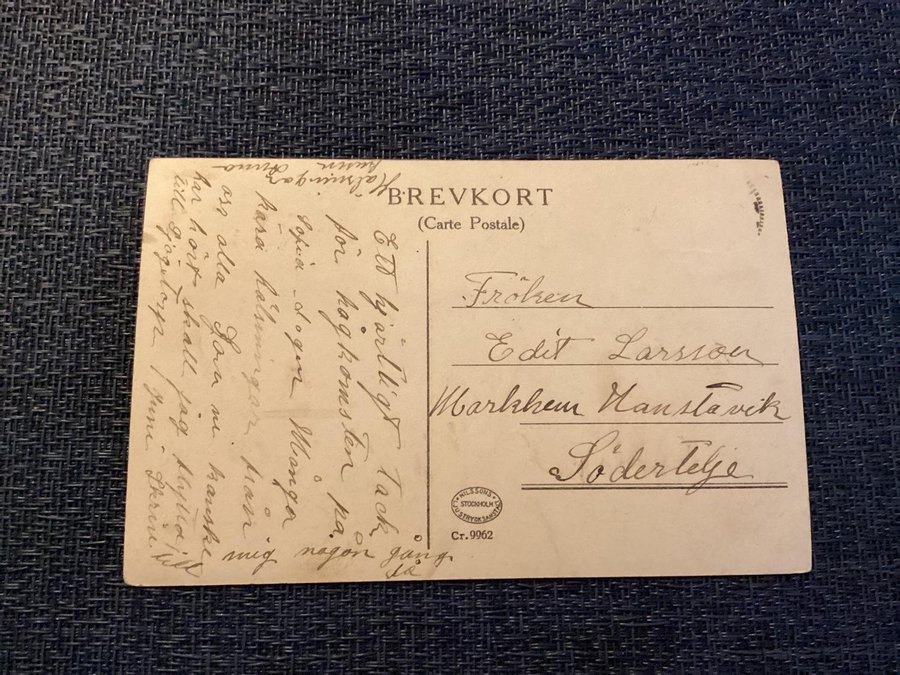 BREVKORT
(Carte Postale)
Ett hjärtligt tack
för hogkomsten på
Sofia-dagen Många
kära hälsningar från
oss alla Som ni kanske
har hört skall jag flytta
till 1 Juni Skriv
mig någon gång
då
Hälsningar
Anna
Fröken
Edit Larsson
Hanstavik
Södertelje
NILSSONS
STOCKHOLM
LJUSTRYCKSANSTALT
Cr. 9962